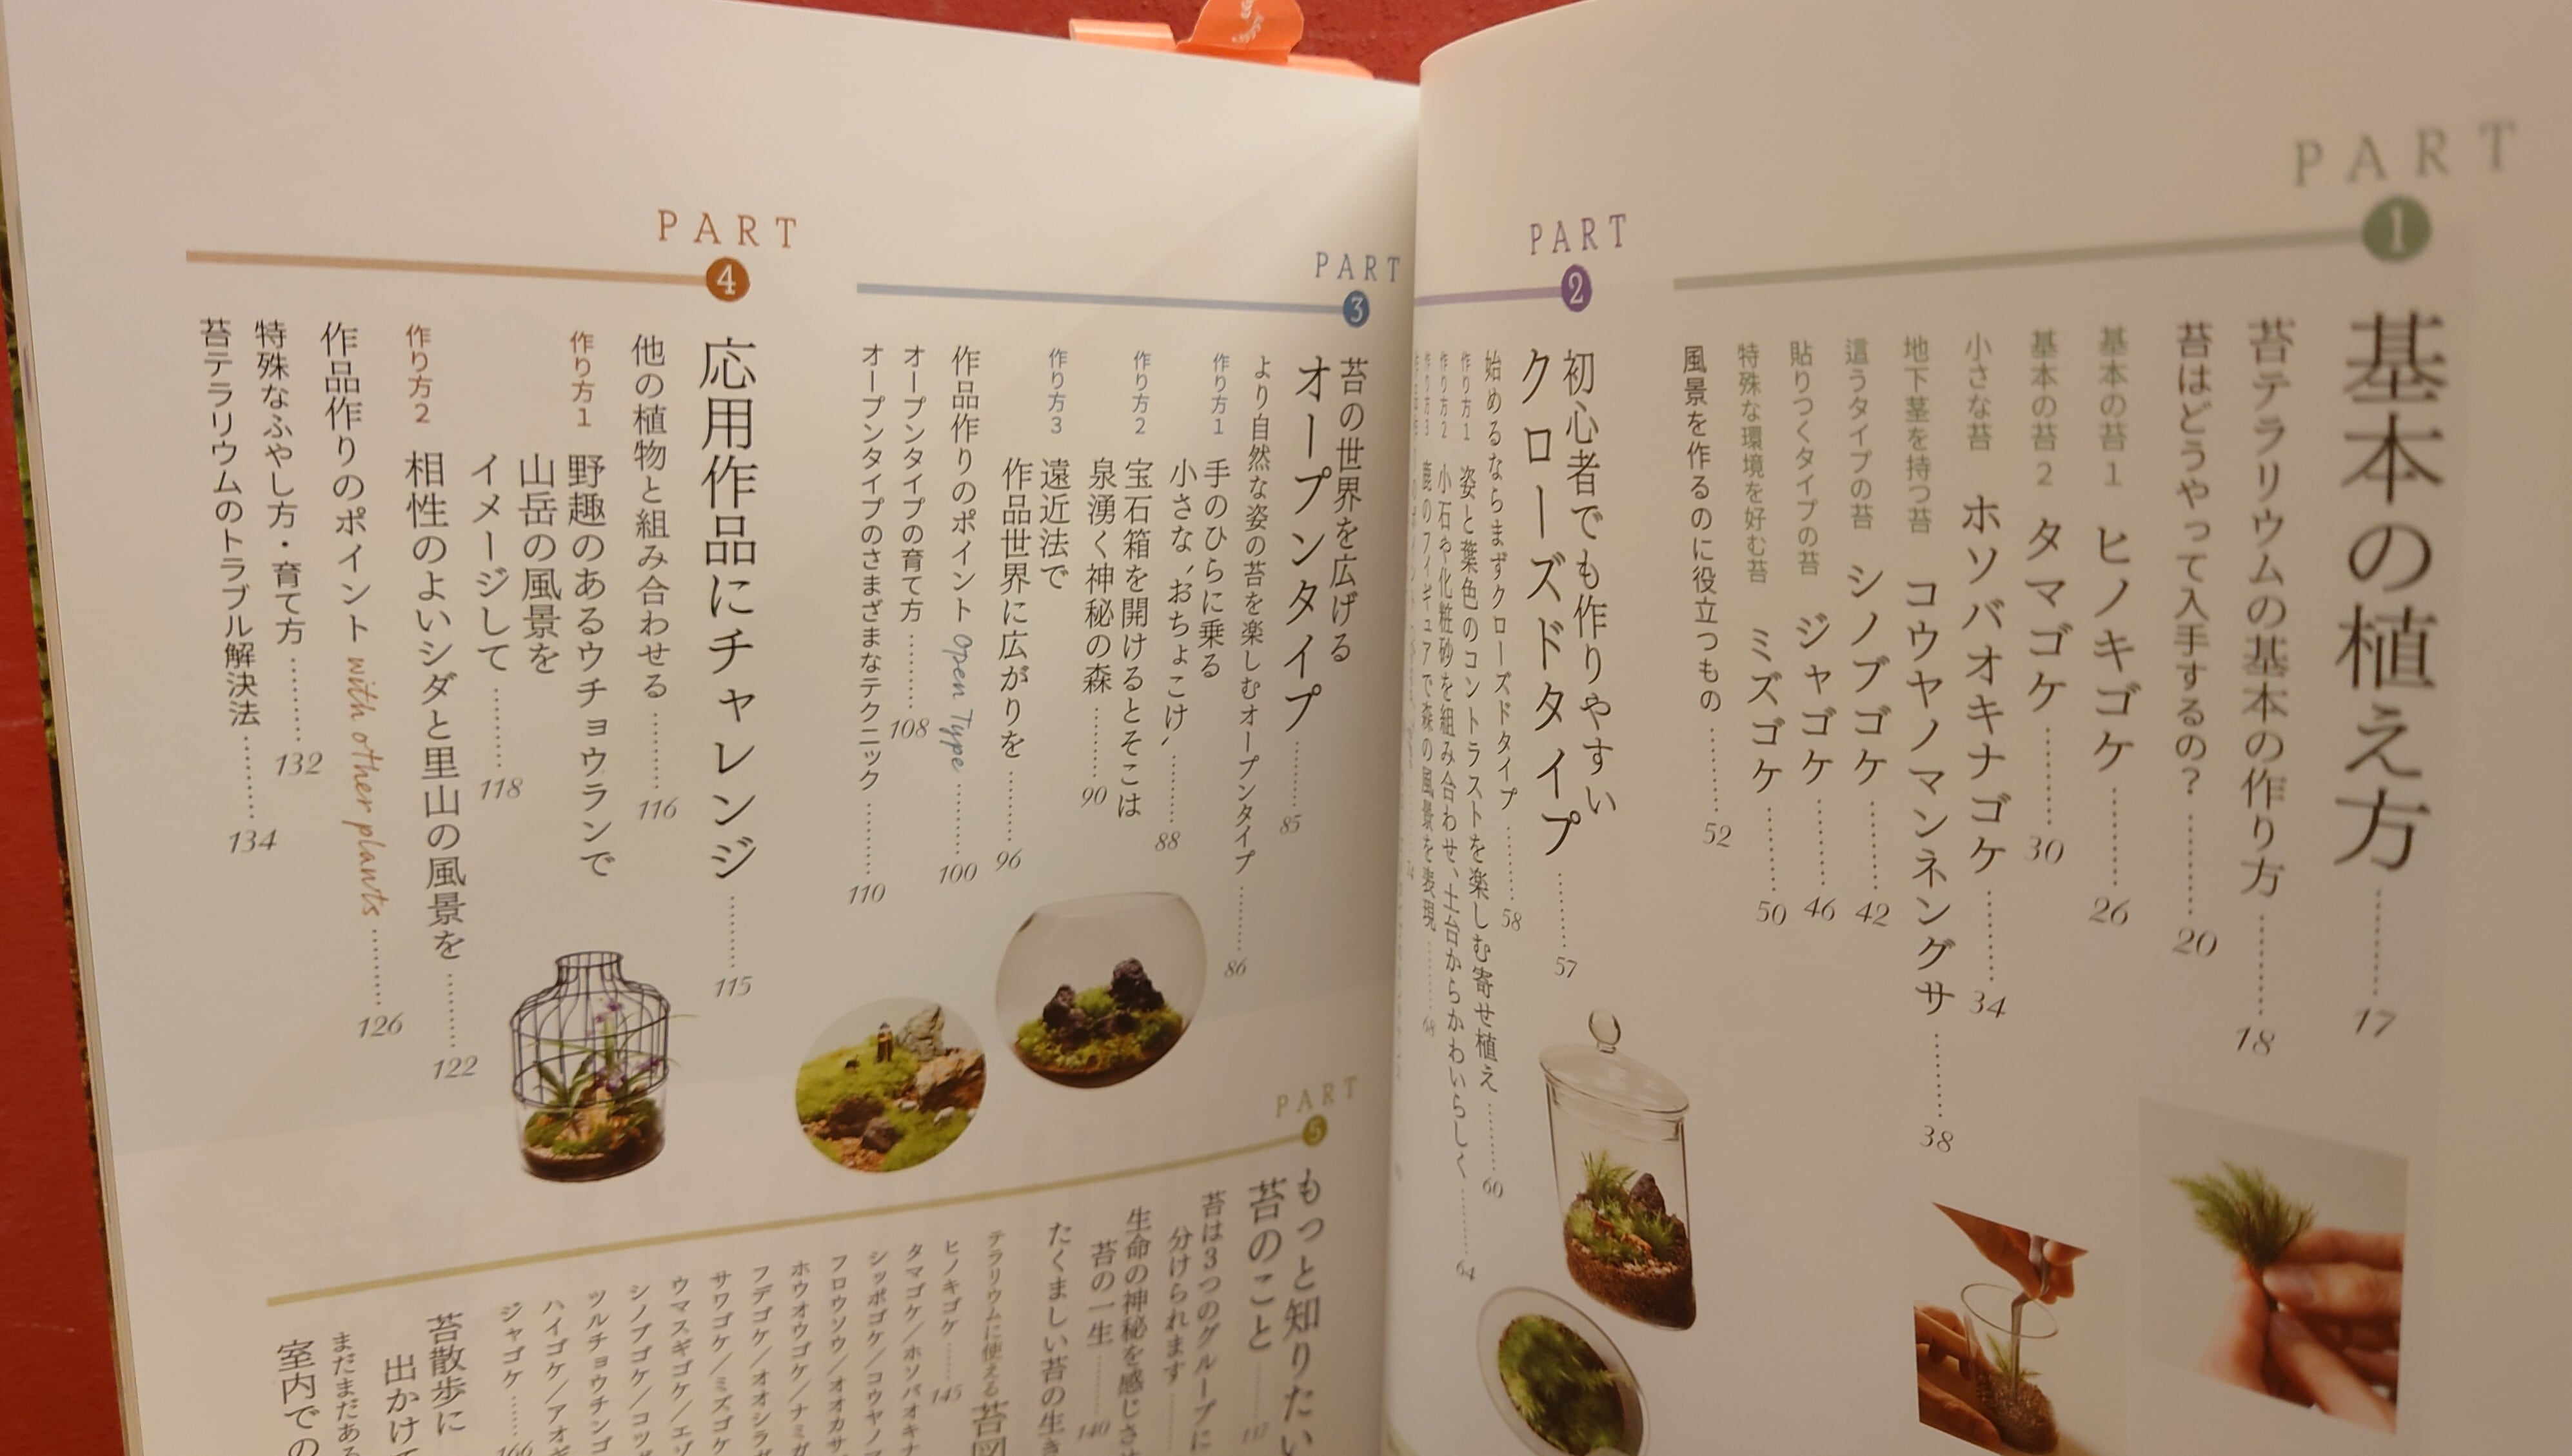 PART
1
基本の植え方 17
苔テラリウムの基本の作り方 18
苔はどうやって入手するの? 20
基本の苔1 ヒノキゴケ 26
基本の苔2 タマゴケ 30
小さな苔 ホソバオキナゴケ 34
地下茎を持つ苔 コウヤノマンネングサ 38
這うタイプの苔 シノブゴケ 42
貼りつくタイプの苔 ジャゴケ 46
特殊な環境を好む苔 ミズゴケ 50
風景を作るのに役立つもの 52
PART
2
初心者でも作りやすい
クローズドタイプ 57
始めるならまずクローズドタイプ 58
作り方1 姿と葉色のコントラストを楽しむ寄せ植え 60
作り方2 小石や化粧砂を組み合わせ、土台からかわいらしく 64
作り方3 鹿のフィギュアで森の風景を表現 68
PART
3
苔の世界を広げる
オープンタイプ 85
より自然な姿の苔を楽しむオープンタイプ 86
作り方1 手のひらに乗る
小さな〝おちょこけ〟 88
作り方2 宝石箱を開けるとそこは
泉湧く神秘の森 90
作り方3 遠近法で
作品世界に広がりを 96
作品作りのポイント Open Type 100
オープンタイプの育て方 108
オープンタイプのさまざまなテクニック 110
PART
4
応用作品にチャレンジ 115
他の植物と組み合わせる 116
作り方1 野趣のあるウチョウランで
山岳の風景を
イメージして 118
作り方2 相性のよいシダと里山の風景を 122
作品作りのポイント with other plants 126
特殊なふやし方・育て方 132
苔テラリウムのトラブル解決法 134
PART
5
もっと知りたい
苔のこと 137
苔は3つのグループに
分けられます
生命の神秘を感じさ
苔の一生 140
たくましい苔の生き
テラリウムに使える苔図
ヒノキゴケ 145
タマゴケ/ホソバオキナ
シッポゴケ/コウヤノマ
フロウソウ/オオカサ
ホウオウゴケ/ナミガ
フデゴケ/オオシラガ
サワゴケ/ミズゴケ
ウマスギゴケ/エゾ
シノブゴケ/コツボ
ツルチョウチンゴ
ハイゴケ/アオギ
ジャゴケ 166
苔散歩に
出かけて
まだまだある
室内での